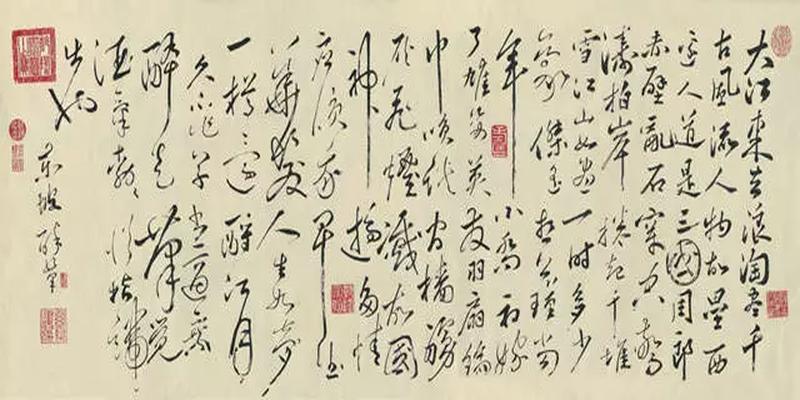 大江東去浪淘盡千
古風流人物故壘西
邊人道是三國周郎
赤壁亂石穿空驚
濤拍岸捲起千堆
雪江山如畫一時多少
豪傑遙想公瑾當
年小喬初嫁
了雄姿英發羽扇綸
巾笑間檣艣
灰飛煙滅故國
神遊多情
應笑我早生
華髮人生如夢
一樽還酹江月
久不作草書適乘
醉走筆覺
酒氣勃勃從指端
出也
東坡醉筆